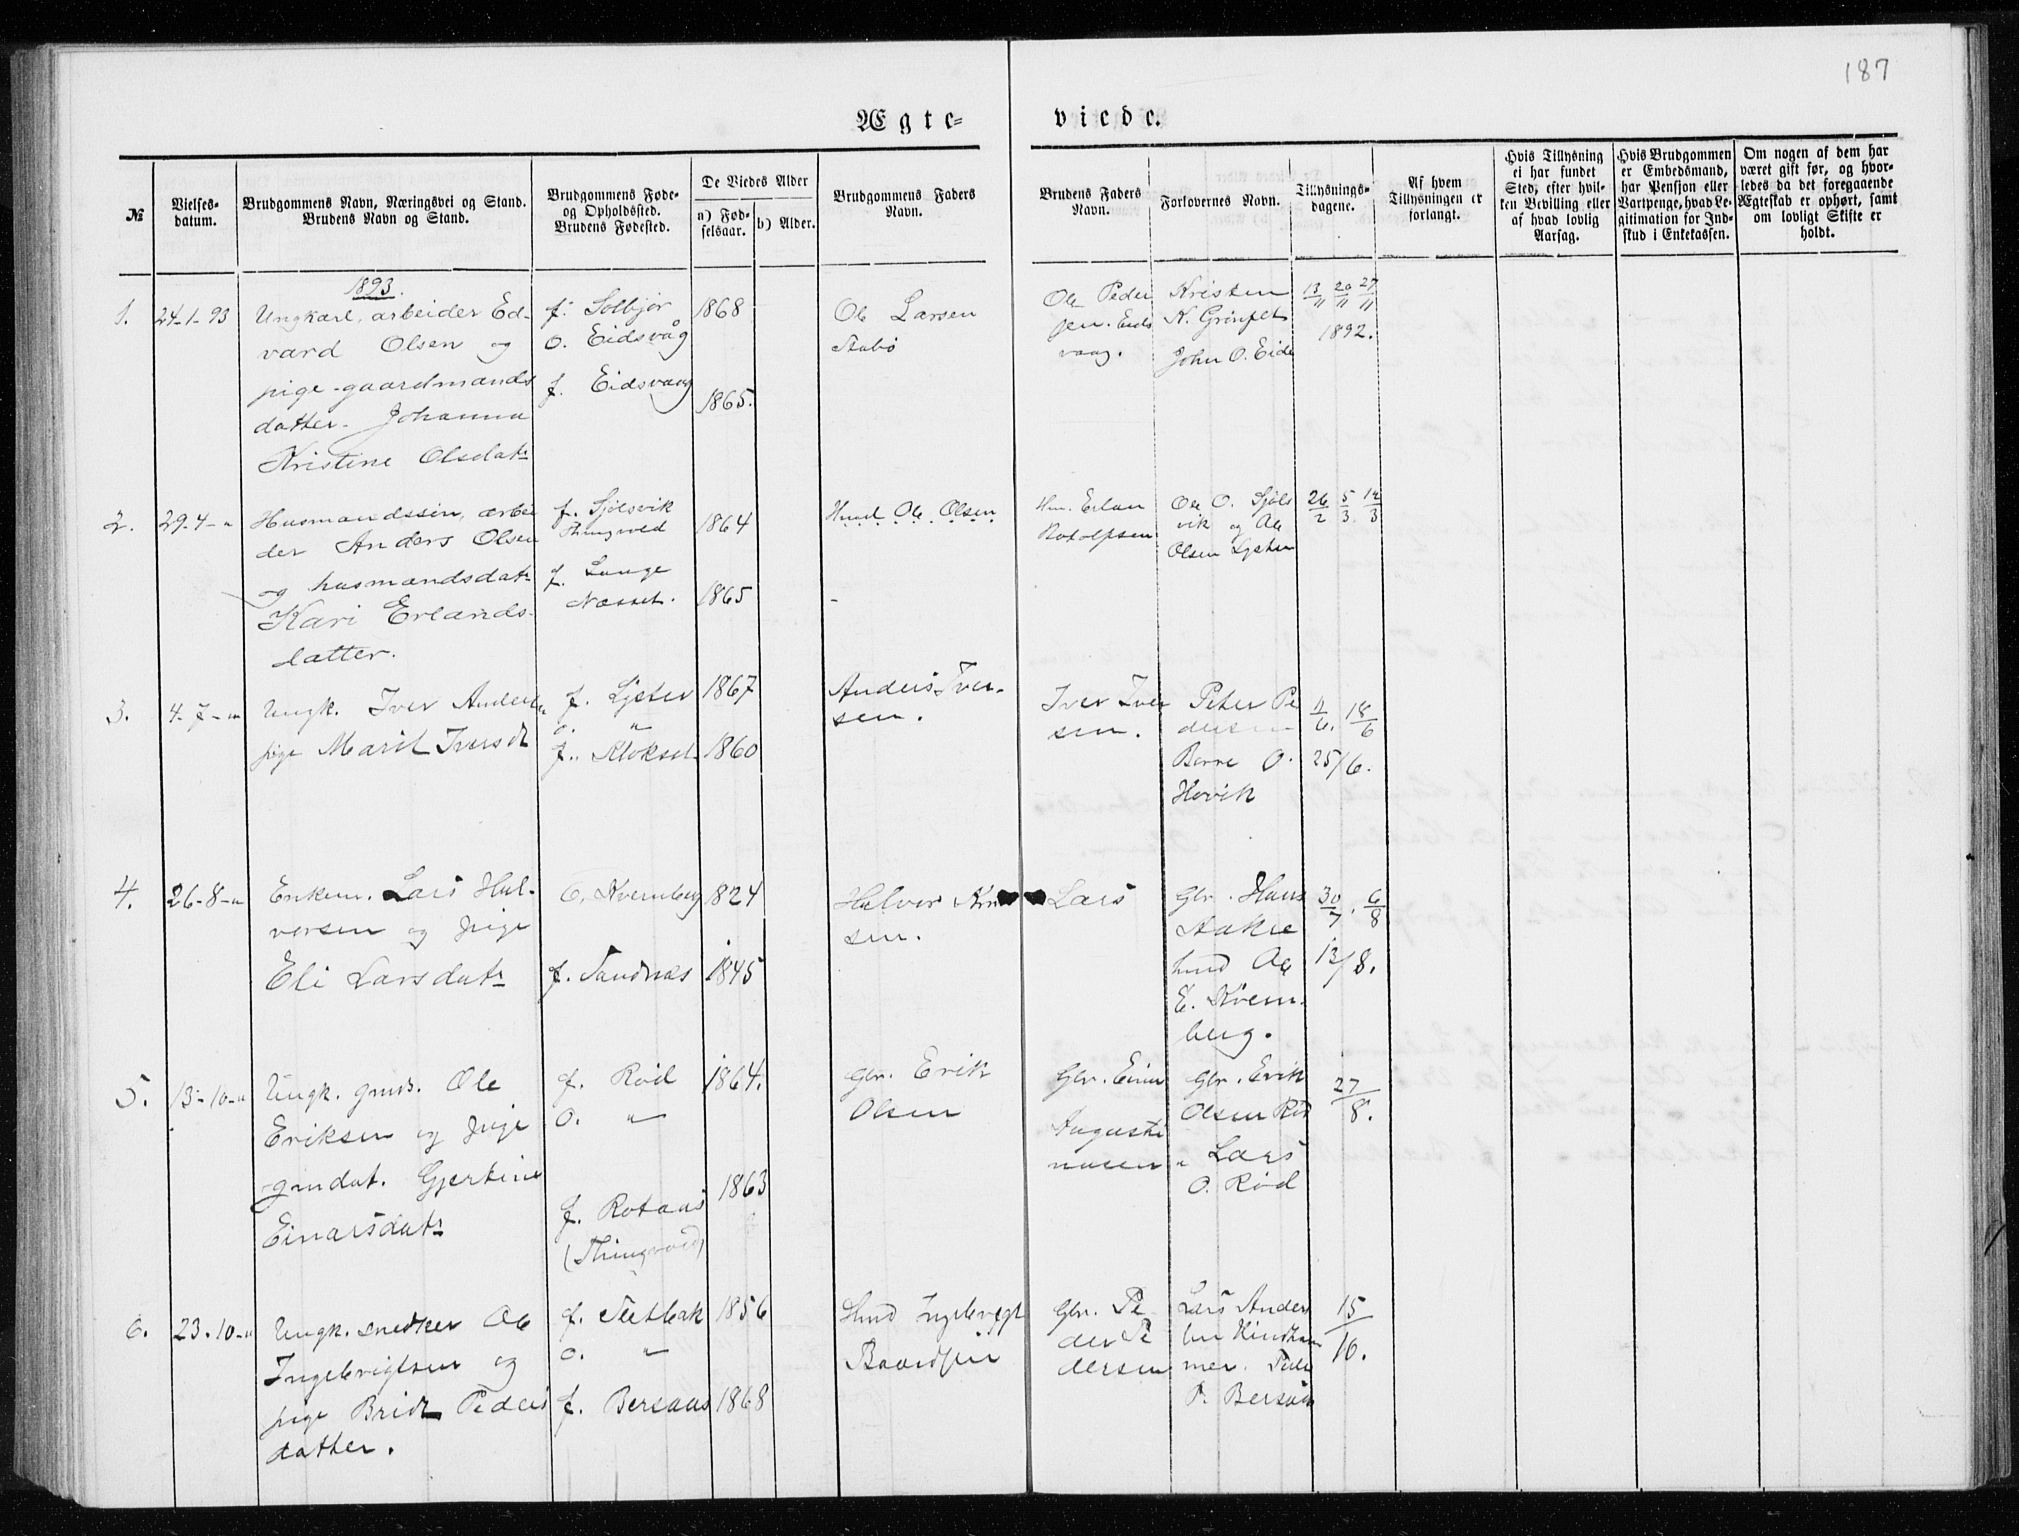 187
Ægte=
viede.
№
Vielses-
datum.
Brudgommens Navn, Næringsvei og Stand.
Brudens Navn og Stand.
Brudgommens Føde-
og Opholdssted.
Brudens Fødested.
De Viedes Alder
a) Fød-
selsaar.
b) Alder.
Brudgommens Faders
Navn.
Brudens Faders
Navn.
Forlovernes Navn.
Tillysnings-
dagene.
Af hvem
Tillysningen er
forlangt.
Hvis Tillysning
ei har fundet
Sted, efter hvil-
ken Bevilling eller
af hvad lovlig
Aarsag.
Hvis Brudgommen
er Embedsmand,
har Pension eller
Vartpenge, hvad Le-
gitimation for Ind-
skud i Enkekassen.
Om nogen af dem har
været gift før, og hvor-
ledes da det foregaaende
Ægteskab er ophørt, samt
om lovligt Skifte er
holdt.
1893.
1.
24-1-93
Ungkarl, arbeider Ed-
vard Olsen og
pige - gaardmands
datter. Johanna
Kristine Olsdatr
f. Solbjør
O. Eidsvåg
f. Eidsvaag
1868
1865.
Ole Larsen
Stabø
Ole Peder
sen. Eids
vaag.
Kristen
K. Grønset
John O. Eide
13/11 20/11 27/11
1892.
2.
29-4-"
Husmandssøn, arbei
der Anders Olsen
og husmandsdatr
Kari Erlands-
datter.
f. Sjølsvik
Thingvold
f. Lange
Næsset.
1864
1865
Husmd Ole Olsen
-
Hm. Erlan
Rotolfsen
Ole O. Sjøls
vik og Ole
Olsen Ljøsten
26/2 5/3. 12/3
3.
4-7-"
Ungk. Iver Anders
pige Marit Iversdt
f. Ljøter
o. "
f. Klokset
1867
1860
Anders Iver-
sen.
Iver Iver
sen.
Peter Pe
dersen
Berre O.
Hovik
11/6. 18/6
25/6.
4.
26-8-"
Enkem. Lars Hal-
vorsen og pige
Eli Larsdatr
O. Kvernberg
f. Sandnes
1824
1845
Halvor
sen.
Lars
Gbr. Hans
Aakre
hmd Ole
E. Kvern-
berg.
30/7. 6/8
13/8.
5.
13-10-"
Ungk. gmds. Ole
Eriksen og pige
gmdat. Gjertine
Einarsdatr
f. Rød
O. "
f. Rotaas
(Thingvold)
1864.
1863
Gbr. Erik
Olsen
Gbr. Einar
Augusti
nusen
Gbr. Erik
Olsen Rød
" Lars
O. Rød
27/8.
6.
23-10-"
Ungk. snedker Ole
Ingebrigtsen og
pige Brit Peders
datter.
f. Sletbak
o. "
f. Bersaas
1856
1868
Hmd Ingebrigt
Baardsen
Gbr. Pe-
der Pe
dersen
Lars Ander
sen Hindham
mer. Peder
P. Bersaas
15/10.